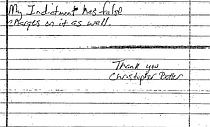 My Indictment has false
charges on it as well.
Thank you
Christopher Potter